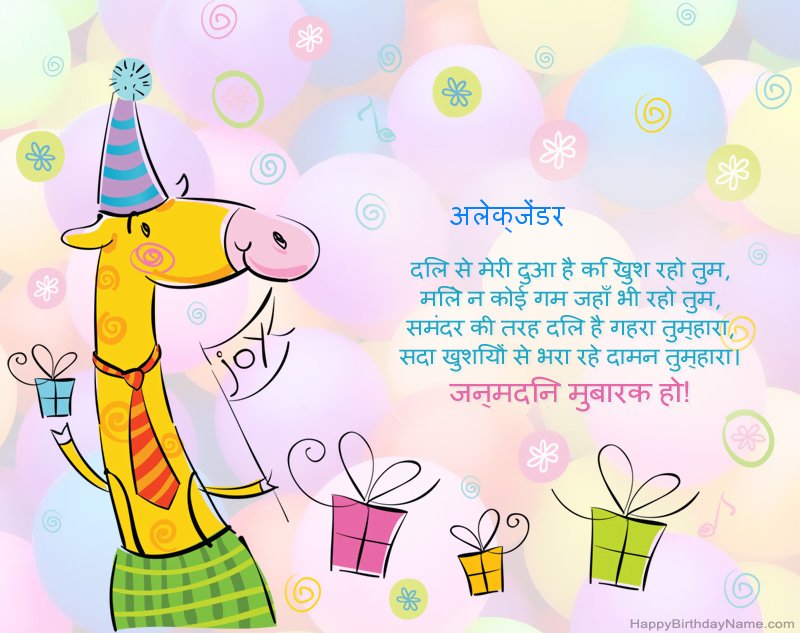 अलेक्जेंडर
दिल से मेरी दुआ है कि खुश रहो तुम,
मिले न कोई गम जहाँ भी रहो तुम,
समंदर की तरह दिल है गहरा तुम्हारा,
सदा खुशियों से भरा रहे दामन तुम्हारा।
जन्मदिन मुबारक हो!
joy
HappyBirthdayName.com